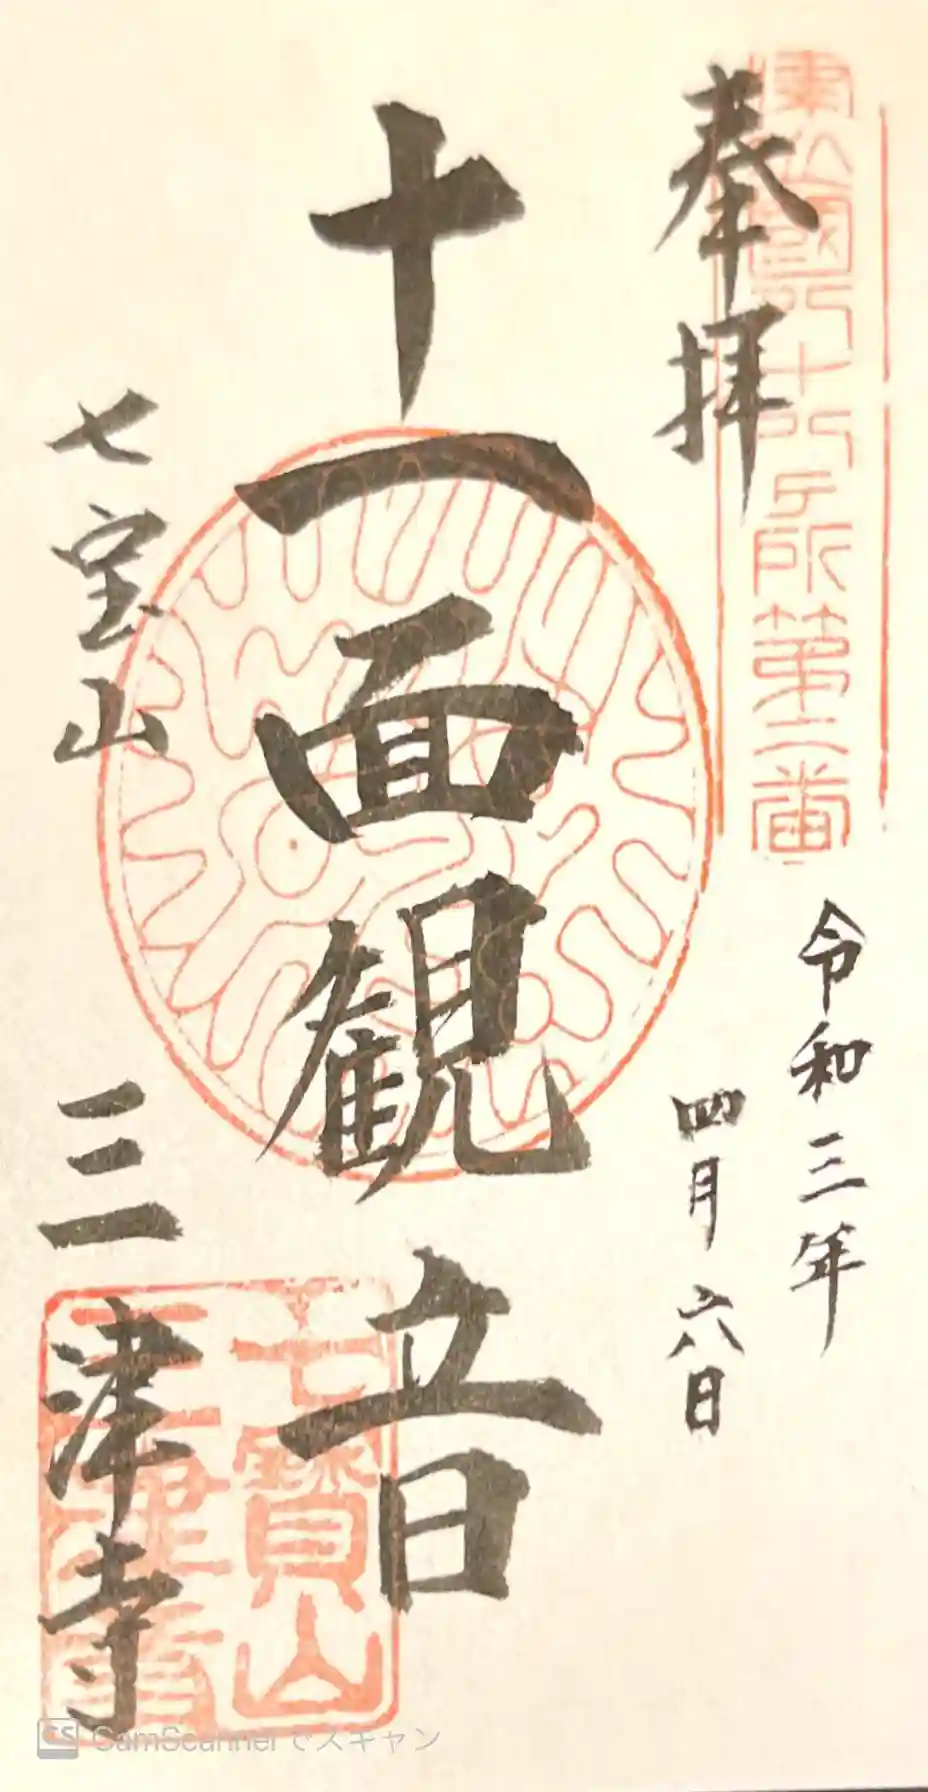 奉拝
令和三年
四月六日
十一面観音
七宝山
三津寺
七寳山
三津寺
CS CamScannerでスキャン